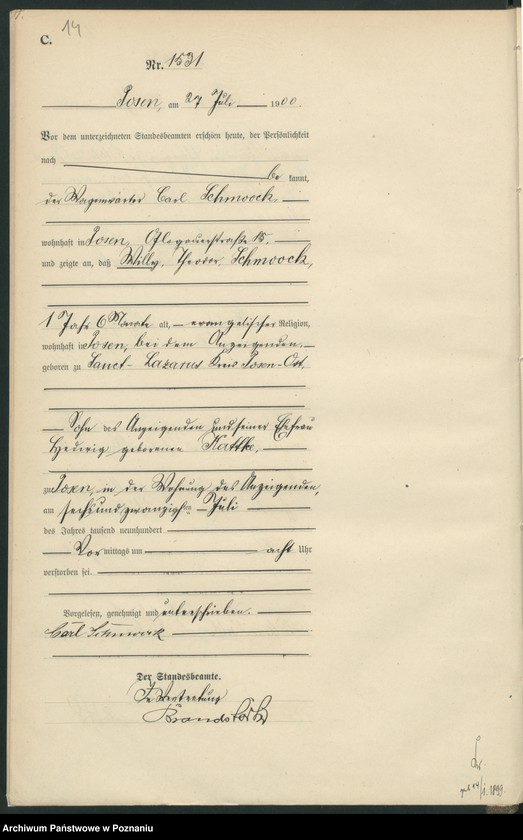 C. 14
Nr. 1531
Posen, am 27 Juli 1900.
Vor dem unterzeichneten Standesbeamten erschien heute, der Persönlichkeit
nach
be kannt,
der Wagenwärter Carl Schmoock,
wohnhaft in Posen, Glogauerstraße 15.
und zeigte an, daß Willy Theodor Schmoock,
1 Jahr 6 Monate alt, evangelischer Religion,
wohnhaft in Posen, bei dem Anzeigenden.
geboren zu Sanct-Lazarus Kreis Posen-Ost,
Sohn des Anzeigenden und seiner Ehefrau
Hedwig geborenen
zu Posen, in der Wohnung des Anzeigenden,
am sechsundzwanzigsten Juli
des Jahres tausend neunhundert
Vor mittags um acht Uhr
verstorben sei.
Vorgelesen, genehmigt und unterschrieben.
Carl Schmoock
Der Standesbeamte.
In Vertretung
14/1. 1899.
Archiwum Państwowe w Poznaniu